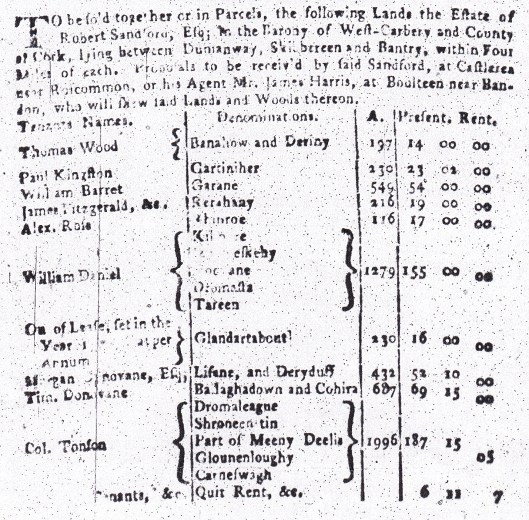 TO be sold together or in Parcels, the following Lands the Estate of
Robert Sandford, Esq; in the Barony of West-Carbery and County
of Cork, lying between Dunianway, Skibereen and Bantry, within Four
Miles of each. Proposals to be receiv'd by said Sandford, at Castlerea
near Roscommon, or his Agent Mr. James Harris, at Boulteen near Ban-
don, who will shew said Lands and Woods thereon.
Tenants Names. Denominations. A. Present. Rent.
Thomas Wood Banahow and Deriny 197 14 00 00
Paul Kingston Gartiniher 230 23 02 00
William Barret Garane 549 54 00 00
James Fitzgerald, &c. 216 19 00 00
Alex. Rois 116 17 00 00
William Daniel 1279 155 00 00
Dromasta
Tareen
Out of Lease, set in the
Year per Glandart 230 16 00 00
Annum
Esq; Lisane, and Deryduff 432 52 10 00
Tim. Donovane Ballaghadown and Cohira 687 69 15 00
Dromaleague
Part of Meeny Deelia
Col. Tonson 1996 187 15 05
Glounenloughy
Carneswagh
&c Quit Rent, &c. 6 11 7